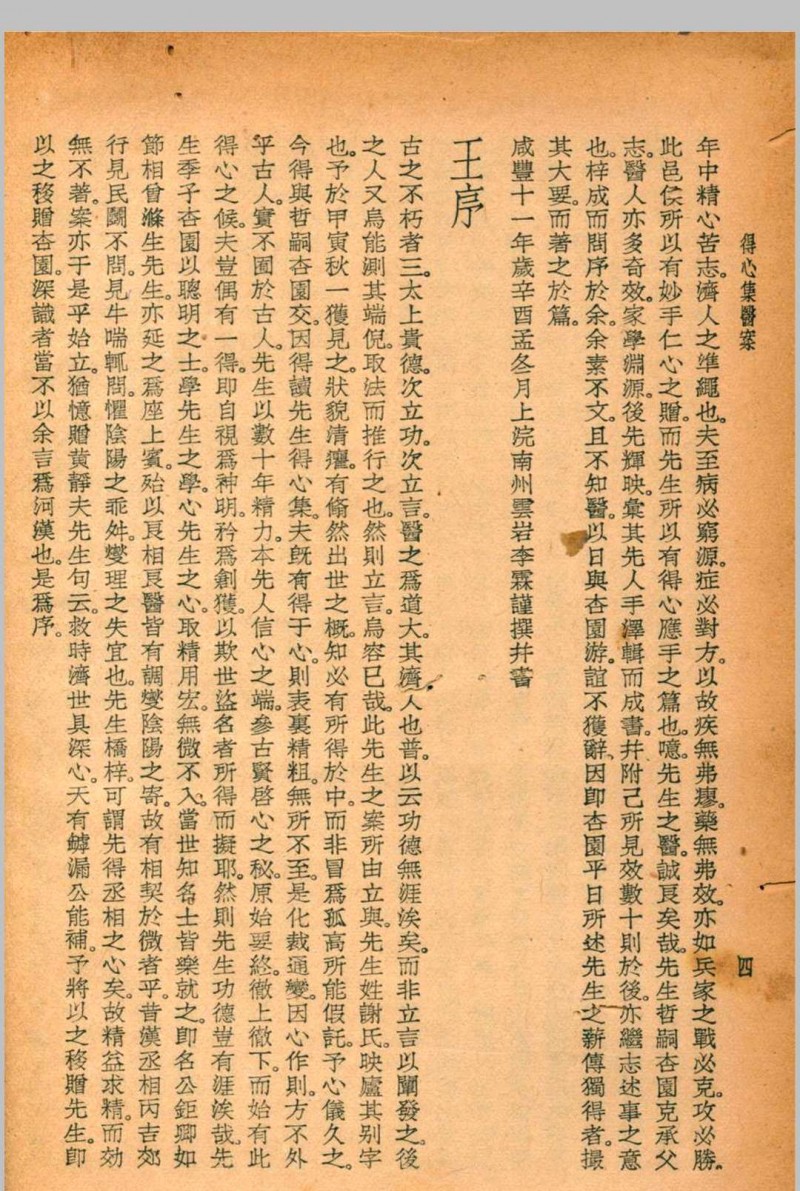 得心集醫案
四
年中精心苦志。濟人之準繩也。夫至病必窮源。症必對方。以故疾無弗瘳。藥無弗效。亦如兵家之戰必克。攻必勝。
此邑侯所以有妙手仁心之贈。而先生所以有得心應手之篇也。噫。先生之醫。誠良矣哉。先生哲嗣杏園克承父
志。醫人亦多奇效。家學淵源。後先輝映。彙其先人手澤。輯而成書。幷附己所見效數十則於後。亦繼志述事之意
也。梓成而問序於余。余素不文。且不知醫。以日與杏園游。誼不獲辭。因卽杏園平日所述先生之薪傳獨得者。撮
其大要。而著之於篇。
咸豐十一年歲辛酉孟冬月上浣南州雲岩李霖謹撰幷書
王序
古之不朽者三。太上貴德。次立功。次立言。醫之爲道大。其濟人也普。以云功德無涯涘矣。而非立言以闡發之。後
之人又烏能測其端倪。取法而推行之也。然則立言。烏容已哉。此先生之案所由立與。先生姓謝氏。映廬其別字
也。予於甲寅秋一獲見之。狀貌清癯。有翛然出世之概。知必有所得於中。而非冒爲孤高所能假託。予心儀久之。
今得與哲嗣杏園交。因得讀先生得心集。夫旣有得于心。則表裏精粗。無所不至。是化裁通變。因心作則。方不外
乎古人。實不囿於古人。先生以數十年精力。本先人信心之端。參古賢啓心之秘。原始要終。徹上徹下。而始有此
得心之候。夫豈偶有一得。卽自視爲神明。矜爲創獲。以欺世盜名者所得而擬耶。然則先生功德豈有涯涘哉。先
生季子杏園以聰明之士。學先生之學。心先生之心。取精用宏。無微不入。當世知名士皆樂就之。卽名公鉅卿如
節相曾滌生先生。亦延之爲座上賓。殆以良相良醫皆有調燮陰陽之寄。故有相契於微者乎。昔漢丞相丙吉郊
行見民鬭不問。見牛喘輒問。懼陰陽之乖舛。燮理之失宜也。先生橋梓。可謂先得丞相之心矣。故精益求精。而効
無不著。案亦于是乎始立。猶憶贈黃靜夫先生句云。救時濟世具深心。天有罅漏公能補。予將以之移贈先生。卽
以之移贈杏園。深識者當不以余言爲河漢也。是爲序。